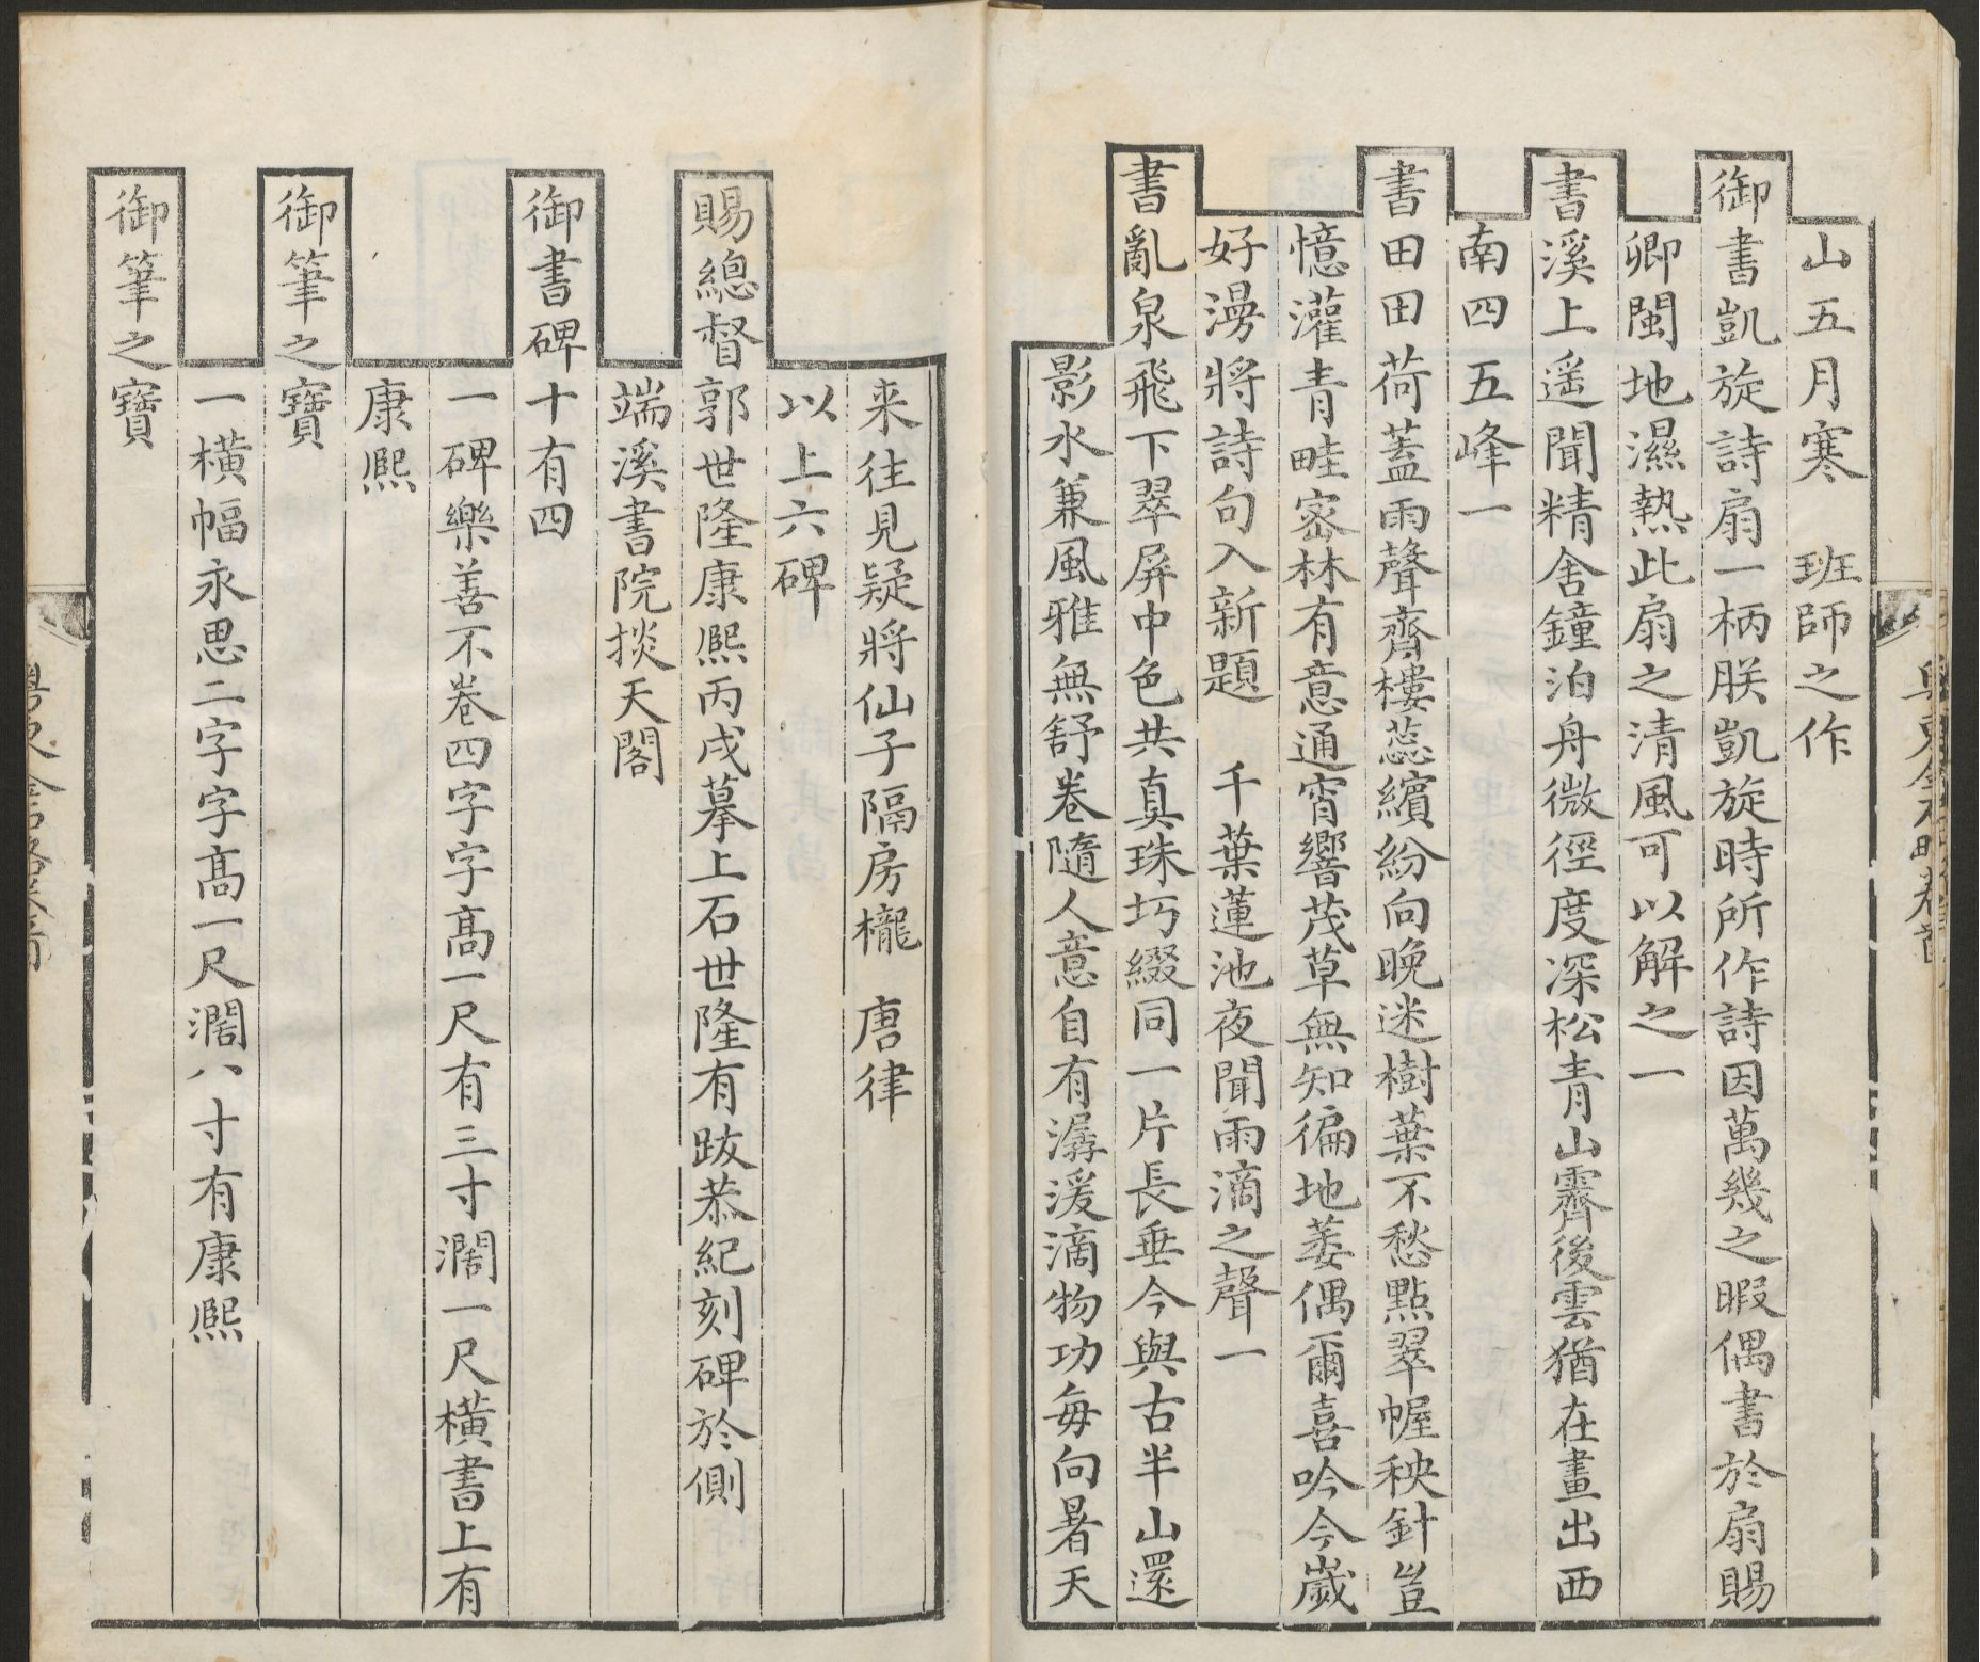 山五月寒　班師之作
御書凱旋詩扇一柄朕凱旋時所作詩因萬幾之暇偶書於扇賜
卿閩地濕熱此扇之清風可以解之一
書溪上遥聞精舍鐘泊舟微徑度深松青山霽後雲猶在畫出西
南四五峰一
書田田荷蓋雨聲齊樓蕊繽紛向晚迷樹葉不愁點翠幄秧針豈
憶灌青畦密林有意通宵響茂草無知徧地萎偶爾喜吟今歲
好漫將詩句入新題　千葉蓮池夜聞雨滴之聲一
書亂泉飛下翠屏中色共真珠巧綴同一片長垂今與古半山還
影水兼風雅無舒卷隨人意自有潺湲滴物功每向暑天
来往見疑將仙子隔房櫳　唐律
以上六碑
賜總督郭世隆康熙丙戌摹上石世隆有跋恭紀刻碑於側
端溪書院掞天閣
御書碑十有四
一碑樂善不卷四字字髙一尺有三寸濶一尺橫書上有
康熙
御筆之寶
一橫幅永思二字字髙一尺濶八寸有康熙
御筆之寶